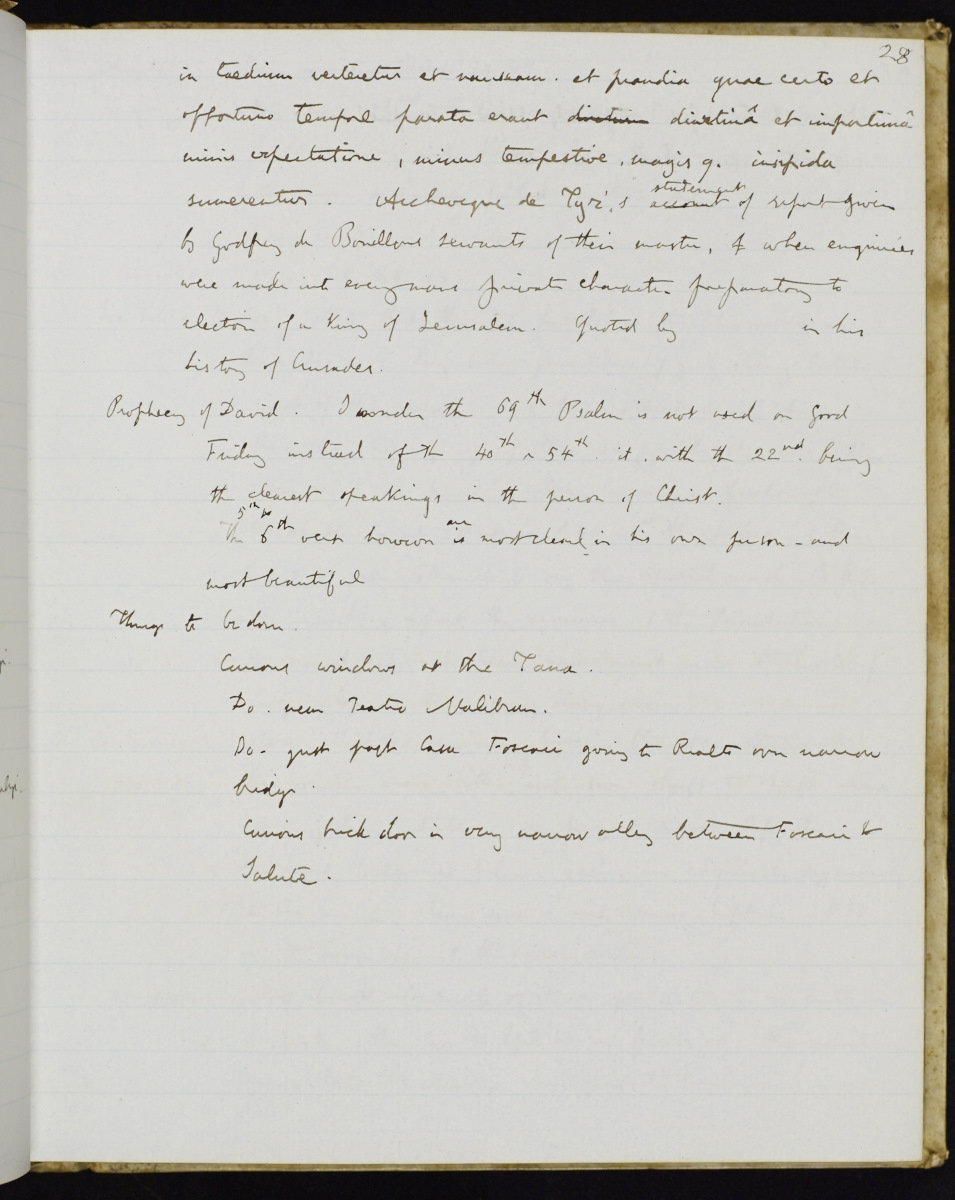 28
in taedium verteretur et nauseam. et prandia quae certo et
opportuno tempore parata erant diutinâ et importunâ
nimis expectatione, minus tempestive, magis q. insipida
sumerentur. Archeveque de Tyr's statement account of report given
by Godfrey de Bouillons servants of their master, & when enquiries
were made into every mans private character preparatory to
election of a King of Jerusalem. Quoted by in his
history of Crusades.
Prophecy of David. I wonder the 69th Psalm is not used on Good
Friday instead of the 40th or 54th. it. with the 22nd. being
the clearest speakings in the person of Christ.
5th to
The 6th verse however is are most clearly in his own person - and
most beautiful
Things to be done.
Curious windows at the Tana.
Do. near Teatro Malibran.
Do. just past Casa Foscari going to Rialto over narrow
bridge.
Curious brick door in very narrow alley between Foscari &
Salute.